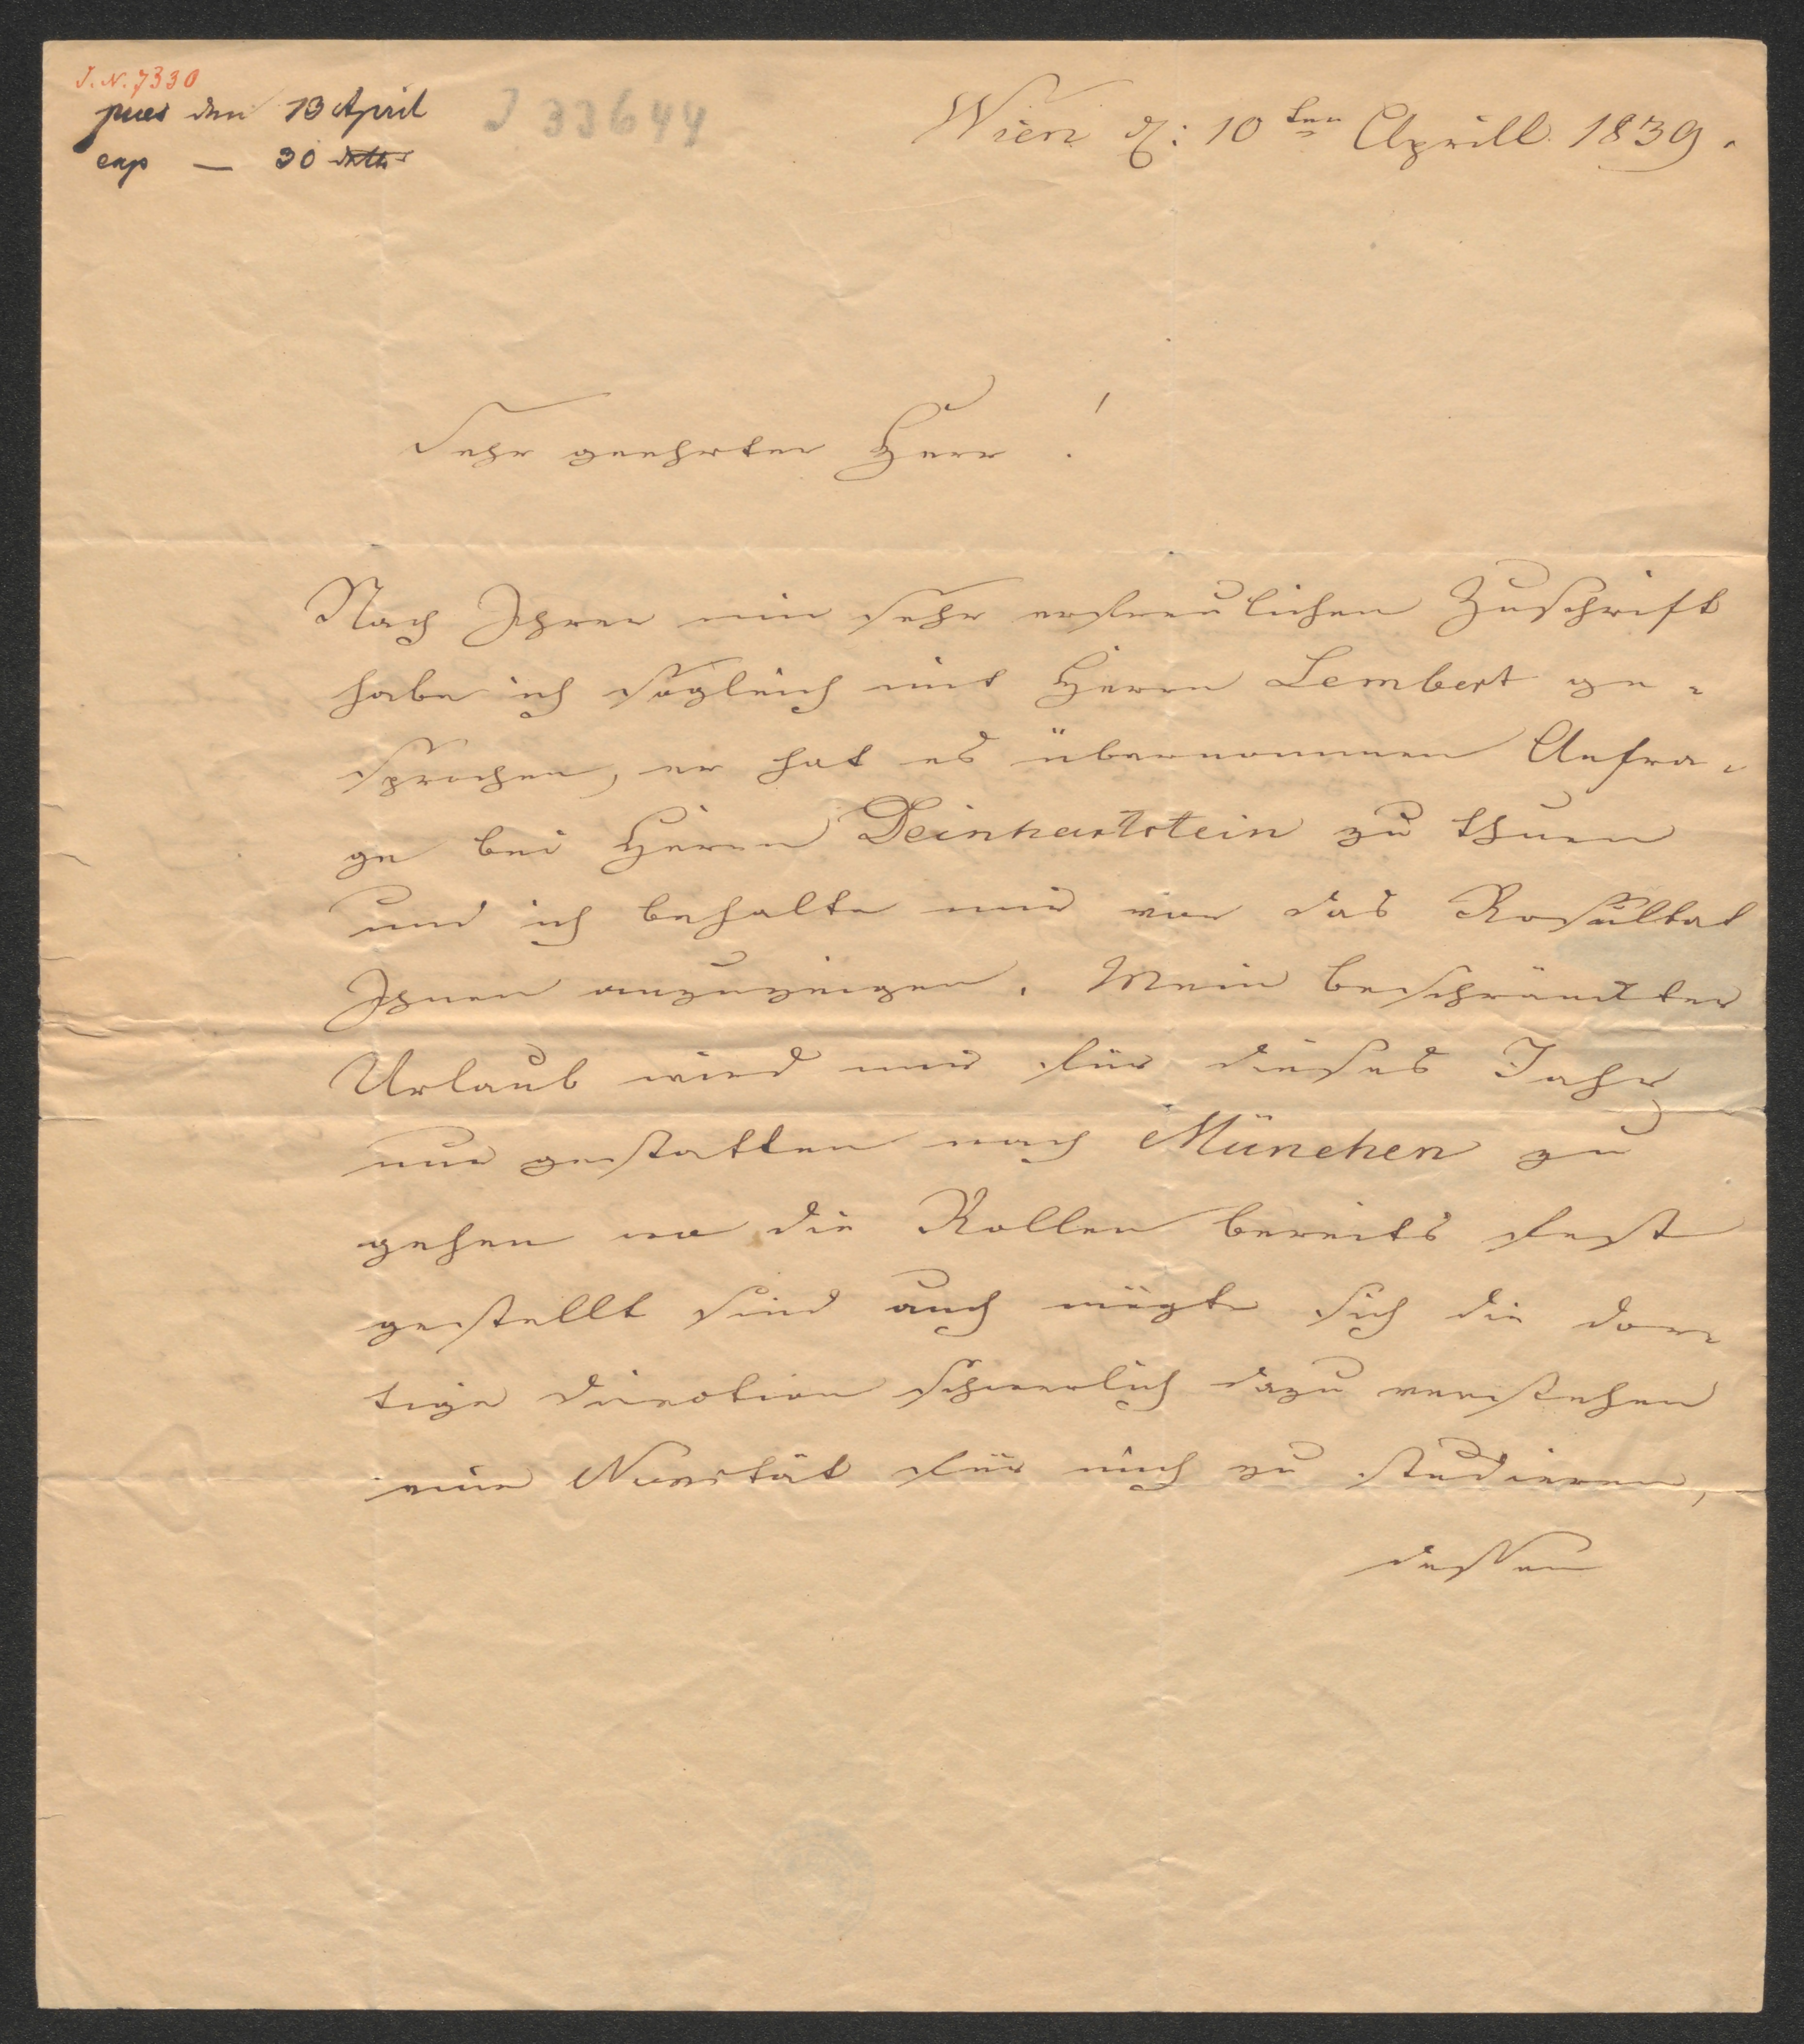 J. N. 7330
praes den 13 April
exp — 30 detto
J 33644
Wien d: 10ten Aprill 1839.
Sehr geehrter Herr!
Nach Ihrer mir sehr erfreulichen Zuschrift
habe ich sogleich mit Herrn Lembert ge=
sprochen, er hat es übernommen Anfra=
ge bei Herrn Deinhartstein zu thuen
und ich behalte mir vor das Resultat
Ihnen anzuzeigen. Mein beschränckter
Urlaub wird mir für dieses Jahr
nur gestatten nach München zu
gehen wo die Rollen bereits fest
gestellt sind auch mögte sich die dor=
tige Direction schwerlich dazu verstehen
eine Novität für mich zu studieren,
dessen